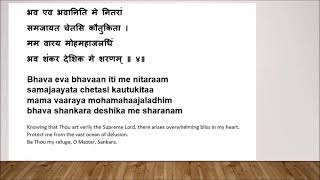 भव एव भवानिति मे नितरां
समजायत चेतसि कौतुकिता ।
मम वारय मोहमहाजलधिं
भव शंकर देशिक मे शरणम् ॥ ४॥
Bhava eva bhavaan iti me nitaraam
samajaayata chetasi kautukitaa
mama vaaraya mohamahaajaladhim
bhava shankara deshika me sharanam
Knowing that Thou art verily the Supreme Lord, there arises overwhelming bliss in my heart.
Protect me from the vast ocean of delusion.
Be Thou my refuge, O Master, Sankara.